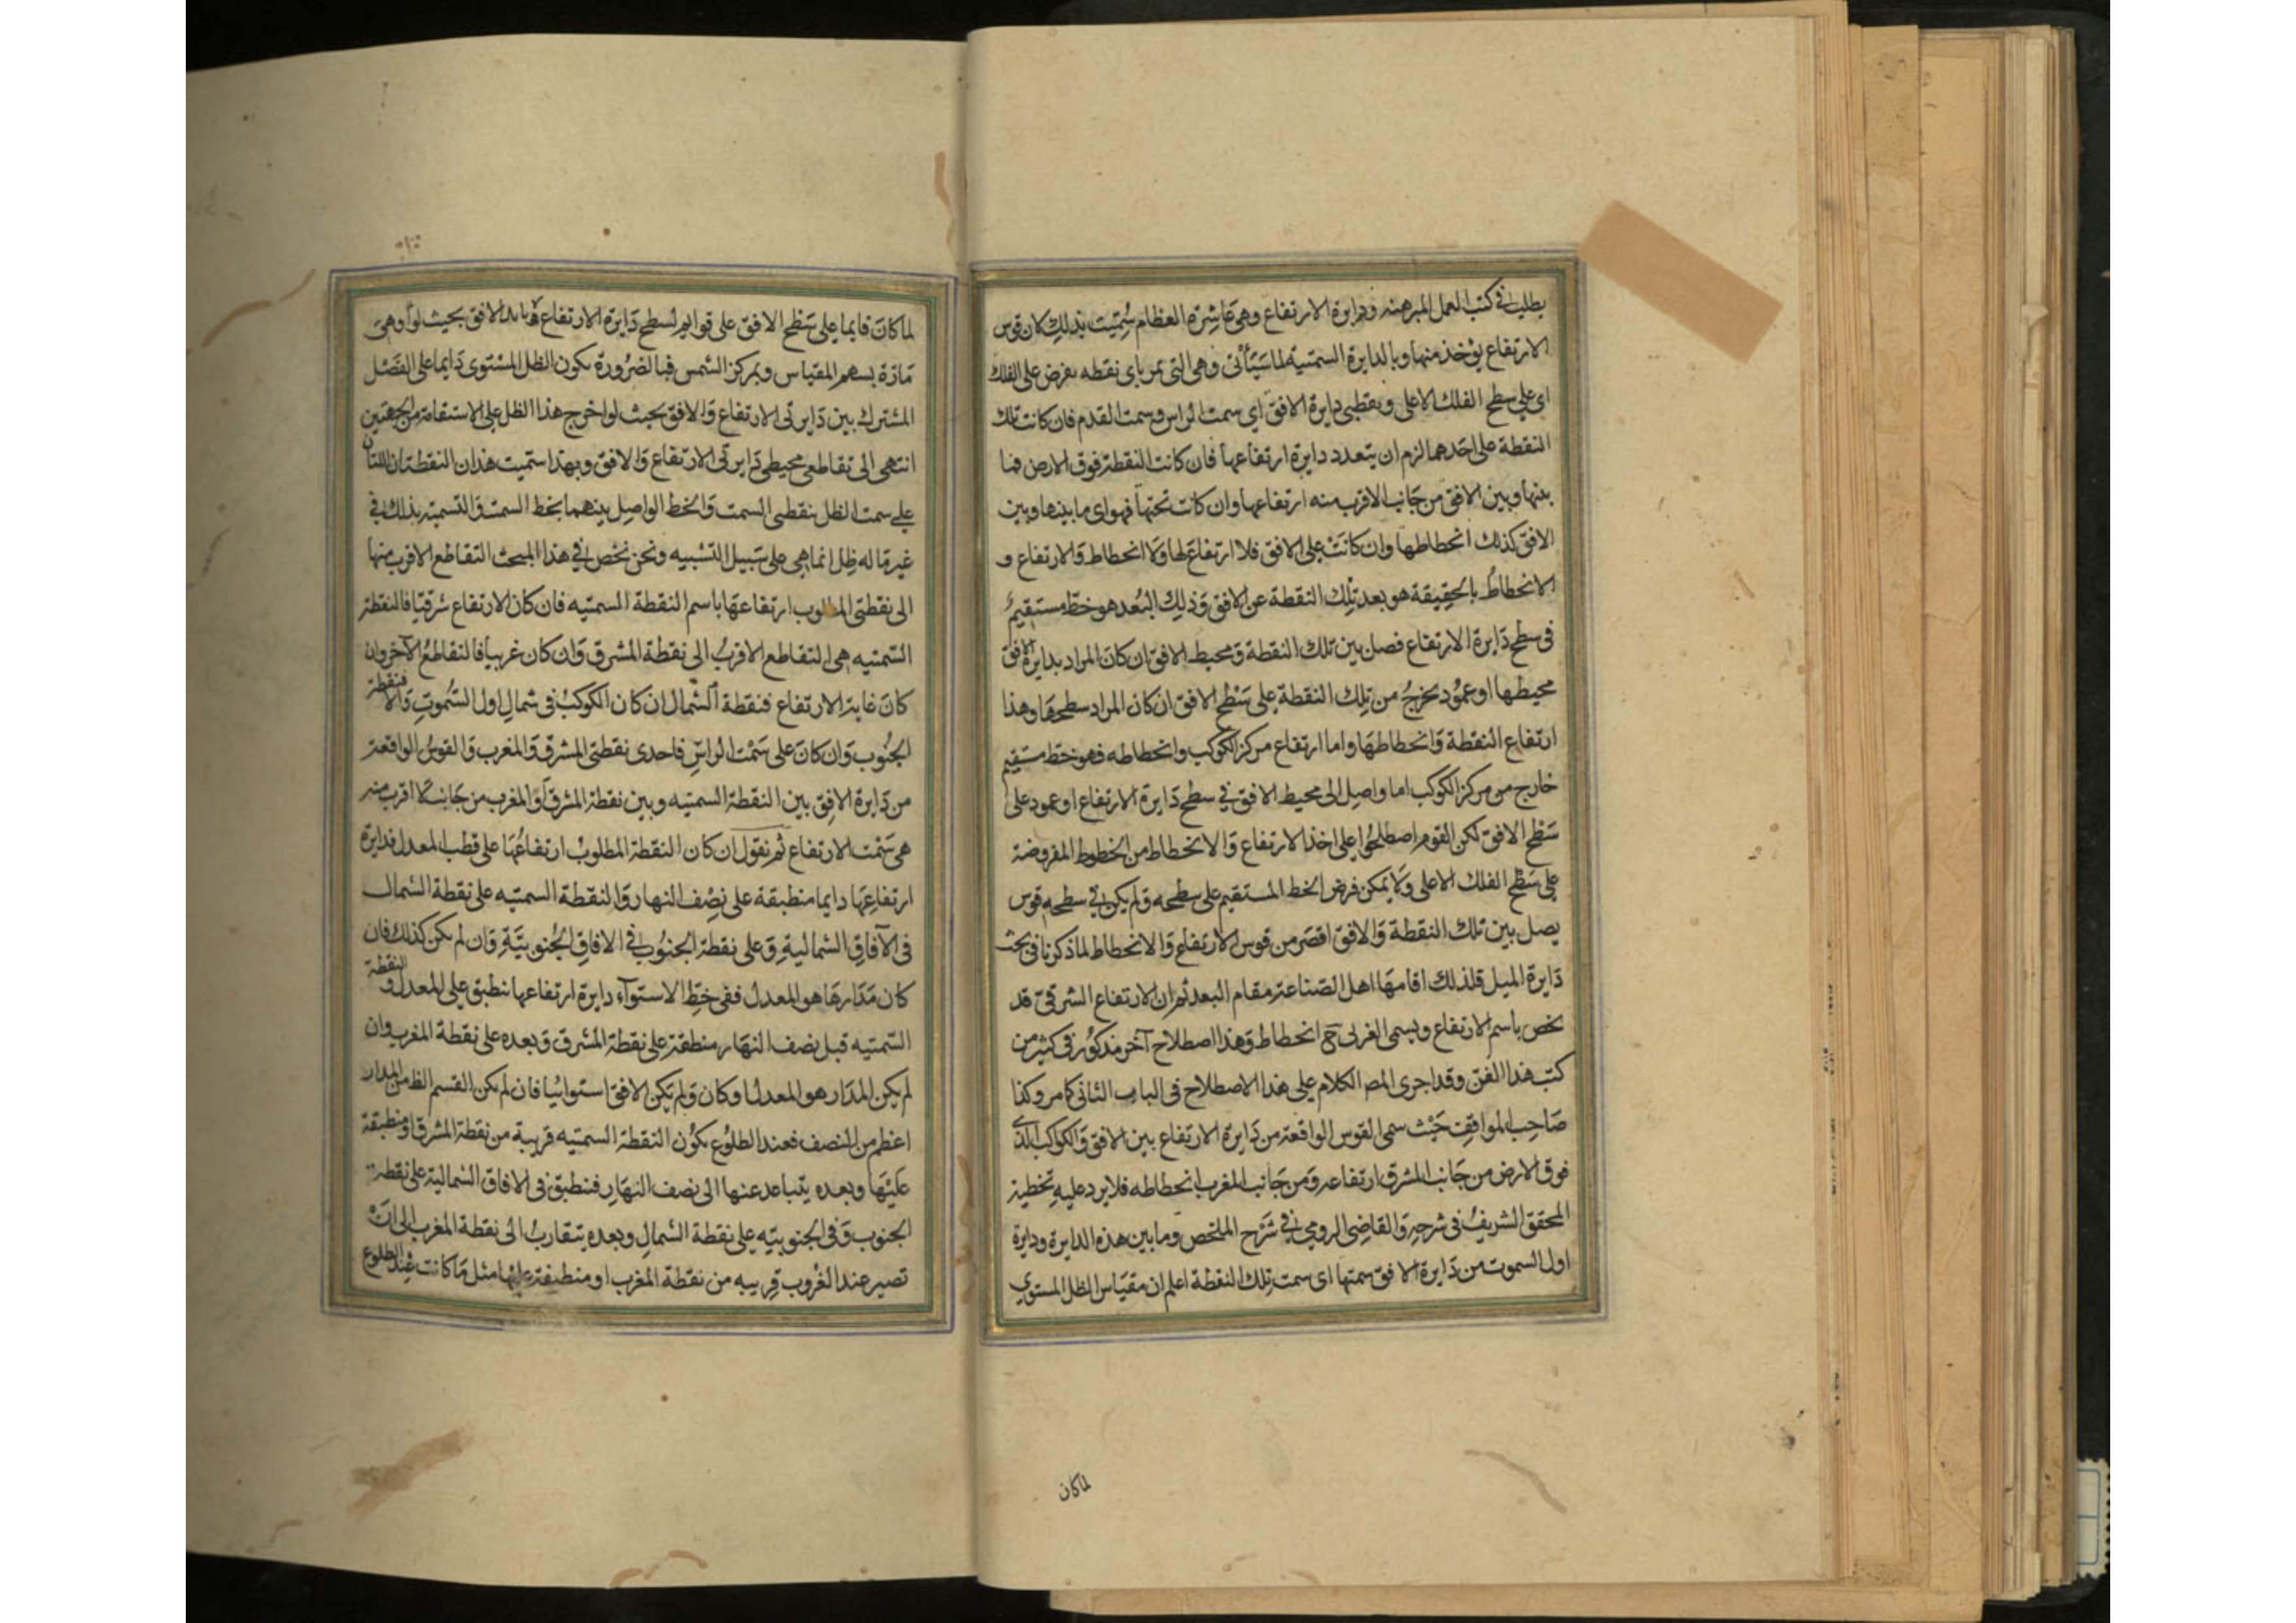 يطلب في كتب العمل المبرهنه ودايرة الارتفاع وهي عاشرة العظام سُمّيت بذلك لان قوس
الارتفاع يؤخذ منها وبالدايرة السمتية لما سَيَأتى وهي التي تمر باى نقطه تفرض على الفلك
اى على سطح الفلك الاعلى وبقطبى دايرة الافق اى سمت الراس وسمت القدم فان كانت تلك
النقطة على احَدهما لزم ان يتعدد دايرة ارتفاعها فان كانت النقطة فوق الارض فما
بينها وبين الافق من جَانب الاقرب منه ارتفاعها وان كانت تحتها فهو اى ما بينها وبين
الافق كذلك انحطاطها وان كانَتْ على الافق فلا ارتفاع لها وَلا انحطاط وَالارتفاع و
الانحطاط بالحقيقة هو بعد تلك النقطة عن الافق وَذلِك البُعد هو خطّ مستقيم
فى سطح دَايرة الارتفاع فصل بين تلك النقطة وَمحيط الافق ان كانَ المراد بدايرة الافق
محيطها او عمُود يخرجُ من تلِك النقطة على سَطْح الافق ان كان المراد سطحهَا وهذا
ارتفاع النقطة وَانحطاطهَا واما ارتفاع مركز الكوكب وانحطاطه فهو خط مستقيم
خارج من مركز الكوكب اما واصِل الى محيط الافق فى سطح دَايرة الارتفاع او عمود على
سَطْح الافق لكن القوم اصطلحُوا على اخذ الارتفاع وَالانحطاط من الخطوط المفروضة
على سَطْح الفلك الاعلى وَلا يمكن فرض الخط المستقيم على سطحه وَلم يكن فى سطحه قوس
يصل بين تلك النقطة وَالافق اقصَر من قوس الارتفاع وَالانحطاط لما ذكرنا فى بحث
دَايرة الميل فلذلك اقامهَا اهل الصّناعة مقام البعد ثم ان الارتفاع الشرقىّ قد
يخص باسم الارتفاع ويسمى الغربى ح انحطاط وَهذا اصطلاح آخر مذكُور فى كثير من
كتب هذا الفن وقد اجرى المص الكلام على هذا الاصطلاح فى الباب الثانى كما مر وكذا
صَاحِب المواقف حَيْث سمى القوس الواقعة من دَايرة الارتفاع بين الافق وَالكواكب الذى
فوق الارض من جَانب المشرق ارتفاعه وَمن جَانب المغرب انحطاطه فلا يرد عليهِ تخطية
المحقق الشريفُ فى شرحِهِ وَالقاضِى الرومى فى شَرْح الملخص وما بين هذه الدايرة ودايرة
اول السموت من دَايرة الافق سمتها اى سمت تِلك النقطة اعلم ان مقيَاس الظل المستوى
لما كان
لما كانَ قايما على سَطْح الافق على قوايم لسطح دَايرة الارتفاع بحيث
مَارّة بسهم المقياس وبمركز الشمس فبالضرُورة يكون الظل المسْتوى دَايما على الفَصْل
المشترك بين دَايرتى الارتفاع وَالافق بحيث لو اخرج هذا الظل على الاستقامة من الجهتين
انتهى الى تقاطعى محيطى دَايرتى الارتفاع وَالافق وبهذا سمّيت هذان النقطتان اللتان
على سمت الظل بنقطتى السمت وَالخط الواصِل بينهما بخط السمت وَالتسمية بذلك فى
غير مَا له ظِل انما هى على سَبيل التشبيه ونحن نخص فى هذا المبحث التقاطع الاقرب منها
الى نقطتى المطلوب ارتفاعهَا باسم النقطة السمتيه فان كان الارتفاع شرقيّا فالنقطة
السّمتيه هى التقاطع الاقربُ الى نقطة المشرق وَان كان غربياً فالتقاطعُ الآخر وان
كانَ غاية الارتفاع فنقطة الشمال ان كان الكوكبُ فى شمال اول السُّموتِ وَالا فنقطة
الجنُوب وَان كانَ على سَمْت الراسِ فاحدى نقطتى المشرق وَالمغرب وَالقوسُ الواقعة
من دَايرة الافق بين النقطة السمتيه وبين نقطة المشرق اَو المغرب من جَانب الاقرب منه
هى سَمْت الارتفاع ثم نقول ان كان النقطة المطلوبُ ارتفاعُهَا على قطب المعدل فدايرة
ارتفاعِهَا دايما منطبقة على نِصْف النهار وَالنقطة السمتيه على نقطة الشمال
فى الآفاق الشماليةِ وَعلى نقطة الجنُوب فى الافاق الجُنوبيَّةِ وَان لم يكن كذلك فان
كان مَدَارهَا هو المعدل ففى خطِّ الاستوآء دايرة ارتفاعها ينطبق على المعدل و النقطة
السّمتيه قبل نصف النهَار منطبقة على نقطة المشرق وَبعده على نقطة المغرب وان
لم يكن المدَار هو المعدل او كان وَلم يكن الافق استوائيا فان لم يكن القسم الظ من المدار
اعظم من النصف فعند الطلوُع يكُون النقطة السمتيه قريبة من نقطة المشرق او منطبقة
عَليْهَا وبعده يتباعد عنها الى نصف النهَارِ فنطبق فى الافاق الشمالية على نقطة
الجنوب وَفى الجنوبيّه على نقطة الشمالِ وبعده يتقاربُ الى نقطة المغرب الى ان
تصير عند الغرُوب قريبه من نقطة المغرب او منطبقة عليها مثل مَا كانت عند الطلوع